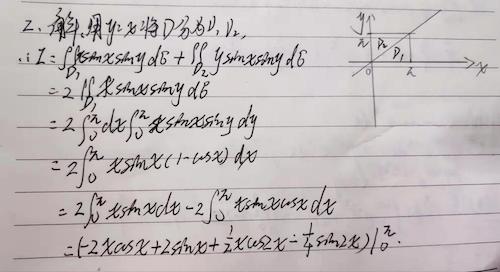 2. 解:用y=x将D分为D₁, D₂,
∴ I = ∬_{D₁} x sinx siny dδ + ∬_{D₂} y sinx siny dδ
= 2∬_{D₁} x sinx siny dδ
= 2∫₀^π dx ∫₀^x x sinx siny dy
= 2∫₀^π x sinx (1-cosx) dx
= 2∫₀^π x sinx dx - 2∫₀^π x sinx cosx dx
= (-2xcosx + 2sinx + ½xcos2x - ¼sin2x)|₀^π.
y
π
D₂
D₁
0
π
x